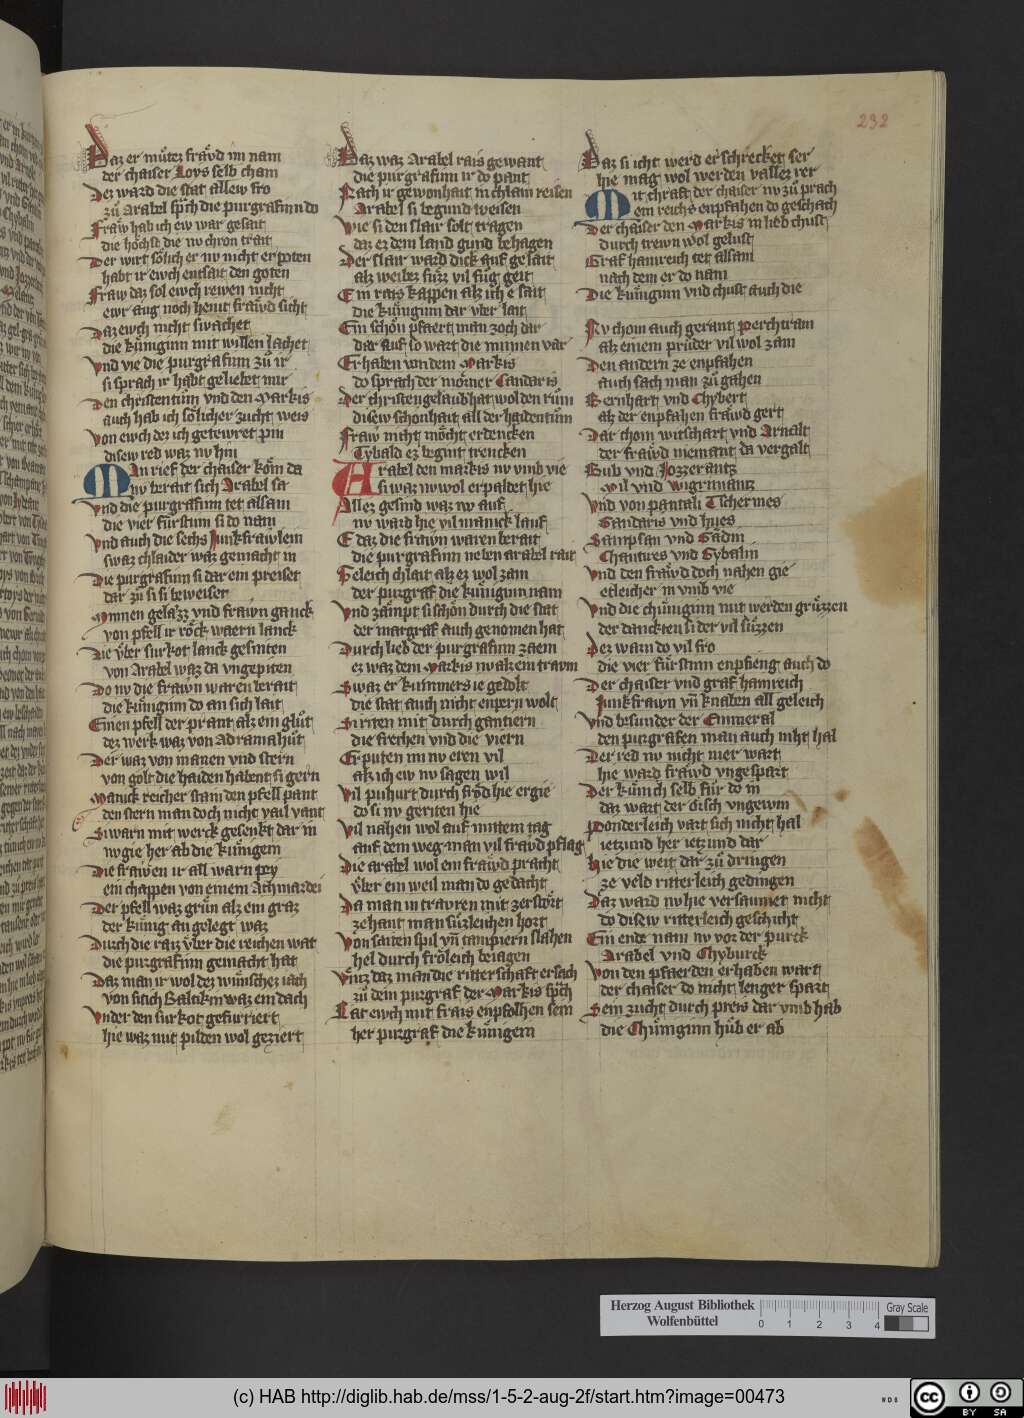 232
Daz er muͤtez fraͮd im nam
der chaiser Loys selb cham
Der ward die stat allew fro
zuͦ Arabel sp̄ch die purgrafinn do
Fraw hab ich ew war gesait
die hoͤchst die nv chron trait
Der wirt soͤlich er nv nicht erpoten
habt ir ewch entsait den goten
Fraw daz sol ewch rewen nicht
ewr aug noch hewt fraͮd sicht
Daz ewch nicht swachet
die kuͤniginn mit willen lachet
Vnd vie die purgrafinn zuͦ ir
si sprach ir habt geliebet mir
Den christentuͦm vnd den Markis
auch hab ich soͤlicher zucht weis
Von ewch der ich getewret pin
disew red waz nv hin
Man rief der chaiser koͤm da
nv berait sich Arabel sa
Vnd die purgrafinn tet allsam
die vier fürstinn si do nam
Vnd auch die sechs Junkfrawlein
swaz chlaider waz gemacht in
Die purgrafinn si dar ein preiset
dar zuͦ si si beweiset
Minnen gelaͤzz vnd frawn ganck
von pfell ir roͤck waern lanck
Die vͤber surkot lanck gesniten
von Arabel waz da vngepiten
Do nv die frawn waren berait
die kuͤniginn do an sich lait
Einen pfell der prant alz ein gluͦt
dez werk waz von Adramahuͦt
Der waz von manen vnd stern
von golt die haiden habent si gern
Manick reicher stain den pfell pant
den stern man doch nicht vail vant
Si warn mit werck gesenkt dar in
nv gie her ab die kuͤnigein
Die frawen ir all warn pey
ein chappen von einem Achmardei
Der pfell waz gruͤn alz ein graz
der kuͤnig an gelegt waz
Durch die raiz vͤber die reichen wat
die purgrafinn gemacht hat
Daz man ir wol dez wuͤnschez iach
von sitich Balakin waz ein dach
Vnder den surkot gefurriert
hie waz mit pilden wol geziert
Daz waz Arabel rais gewant
die purgrafinn ir do pant
Nach ir gewonhait in chlain reisen
Arabel si begund weisen
Wie si den slair solt tragen
daz ez dem land gund behagen
Der slair ward dick auf gesait
alz weibez fuͤrz vil fuͦg geit
Ein rais kappen alz ich e sait
die kuͤniginn dar vͤber lait
Ein schoͤn pfaert man zoch dar
dar auf so wart die minnen var
Erhaben von dem Markis
do sprach der moͤrner Candaris
Der christen gelaub hat wol den ruͦm
disew schonhait all der haidentuͦm
Fraw nicht moͤcht erdencken
Tybald ez begint trencken
Arabel den markis nv vmb vie
si waz nv wol erpaldet hie
Allez gesind waz nv auf
nv ward hie vil manick lauf
E daz die frawn waren berait
die purgrafinn neben arabel rait
Geleich chlait alz ez wol zam
der purgraf die kuͤniginn nam
Vnd zaͤmpt si schoͤn durch die stat
der margraf auch genomen hat
Durch lieb der purgrafinn zaem
ez waz dem Markis nv alz ein travm
Swaz er kummers ie gedolt
die stat auch nicht enpern wolt
Si riten mit durch gantiern
die frechen vnd die viern
Erputen im nv eren vil
alz ich ew nv sagen wil
Vil puhurt durch froͤd hie ergie
do si nv geriten hie
Vil nahen wol auf mittem tag
auf dem weg man vil fraͮd pflag
Die arabel wol ein fraͮd pracht
vͤber ein weil man do gedacht
Da man in travren mit zerstoͤrt
zehant man suͤzleichen hort
Von saiten spil vn̄ tampiern slahen
hel durch froͤleich beiagen
Vuͤrz daz man die ritterschaft ersach
zuͦ dem purgraf der Markis sp̄ch
Lat ewch mit frais enpfolhen sein
her purgraf die kuͤnigein
Daz si icht werd erschrecket ser
hie mag wol werden vallez rer
Mit chraft der chaiser nv zuͦ prach
ein reichs enpfahen do geschach
Der chaiser den Markis in lieb chust
durch trewn wol gelust
Graf hamreich tet allsam
nach dem er do nam
Die kuͤniginn vnd chust auch die
Nv chom auch gerant Perchtram
alz einem pruͦder vil wol zam
Den andern ze enpfahen
auch sach man zuͦ gahen
Bernhart vnd Chybert
alz der enpfahen fraͮd gert
Dar chom witschart vnd Arnalt
der fraͮd niemant da vergalt
Gub vnd Jozzerantz
Mil vnd Wigrimantz
Vnd von pantali Tschermes
Gandaris vnd hues
Sampsan vnd Gadin
Chantures vnd Gybalin
Vnd den fraͮd doch nahen gie
etleicher in vmb vie
Vnd die chuͤniginn mit werden gruͤzzen
der danckten si der vil suͤzzen
Dez warn do vil fro
die vier fürstinn enpfieng auch do
Der chaiser vnd graf hamreich
Junkfrawn vn̄ knaben all geleich
Vnd besunder der Emmeral
den purgrafen man auch niht hal
Der red nv nicht mer wart
hie ward fraͮd vngespart
Der kuͤnich selb fuͤr do in
daz wart der disch vngewin
Ponderleich vart sich nicht hal
ietzund her ietzund dar
Hie die weit dar zuͦ dringen
ze veld ritterleich gedingen
Daz ward nv hie versaumet nicht
do disew ritterleich geschicht
Ein ende nam nv vor der purck
Arabel vnd Chyburck
Von den pfaerden erhaben wart
der chaiser do nicht lenger spart
Sein zucht durch preis dar vmb hab
die Chuͤniginn huͦb er ab
Herzog August Bibliothek
Wolfenbüttel
0 1 2 3 4
Gray Scale
(c) HAB http://diglib.hab.de/mss/1-5-2-aug-2f/start.htm?image=00473
WDB
cc
BY SA